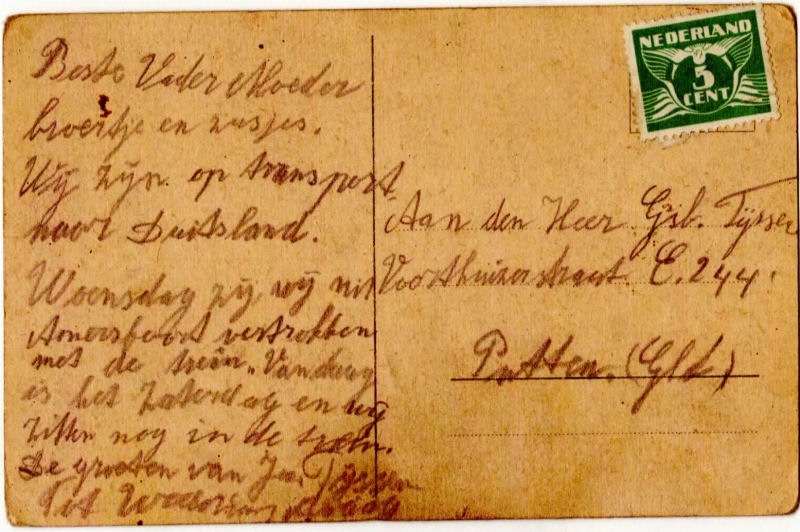 Beste Vader Moeder
broertje en zusjes.
Wij zijn op transport
naar Duitsland.
Woensdag zij wij uit
Amersfoort vertrokken
met de trein. Vandaag
is het Zaterdag en wij
zitten nog in de trein.
De groeten van Jan Tijssen
Tot
NEDERLAND
5
CENT
Aan den Heer Gsb. Tijssen
Voorthuizerstraat E.244.
Putten. (Gld)